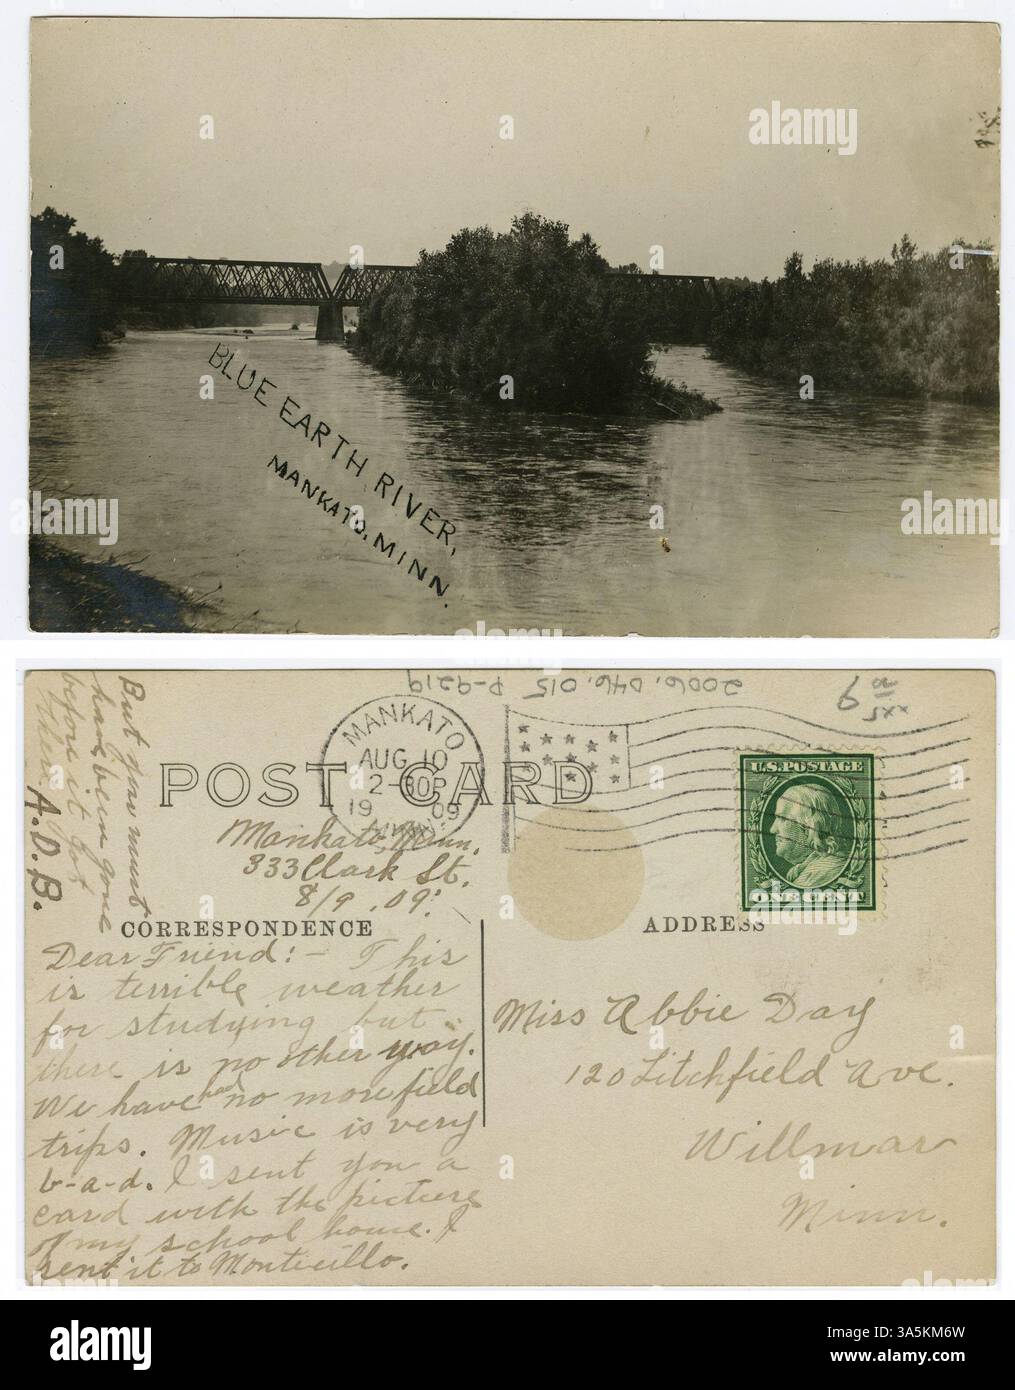 BLUE EARTH RIVER,
MANKATO, MINN.
2006.046.015 P-9219
MANKATO
AUG 10
2-30P
19 09
MINN.
POST CARD
U.S. POSTAGE
ONE CENT
Mankato Minn.
333 Clark St.
8/9, 09.
CORRESPONDENCE
Dear Friend:- This
is terrible weather
for studying but
there is no other way.
We have had no more field
trips. Music is very
b-a-d. I sent you a
card with the picture
of my school house. I
sent it to Monticello.
But you must
have been gone
before it got
there.
A.D.B.
ADDRESS
Miss Abbie Day
120 Litchfield Ave.
Willmar
Minn.
alamy
alamy
alamy
alamy
alamy
alamy
alamy
Image ID: 3A5KM6W
www.alamy.com